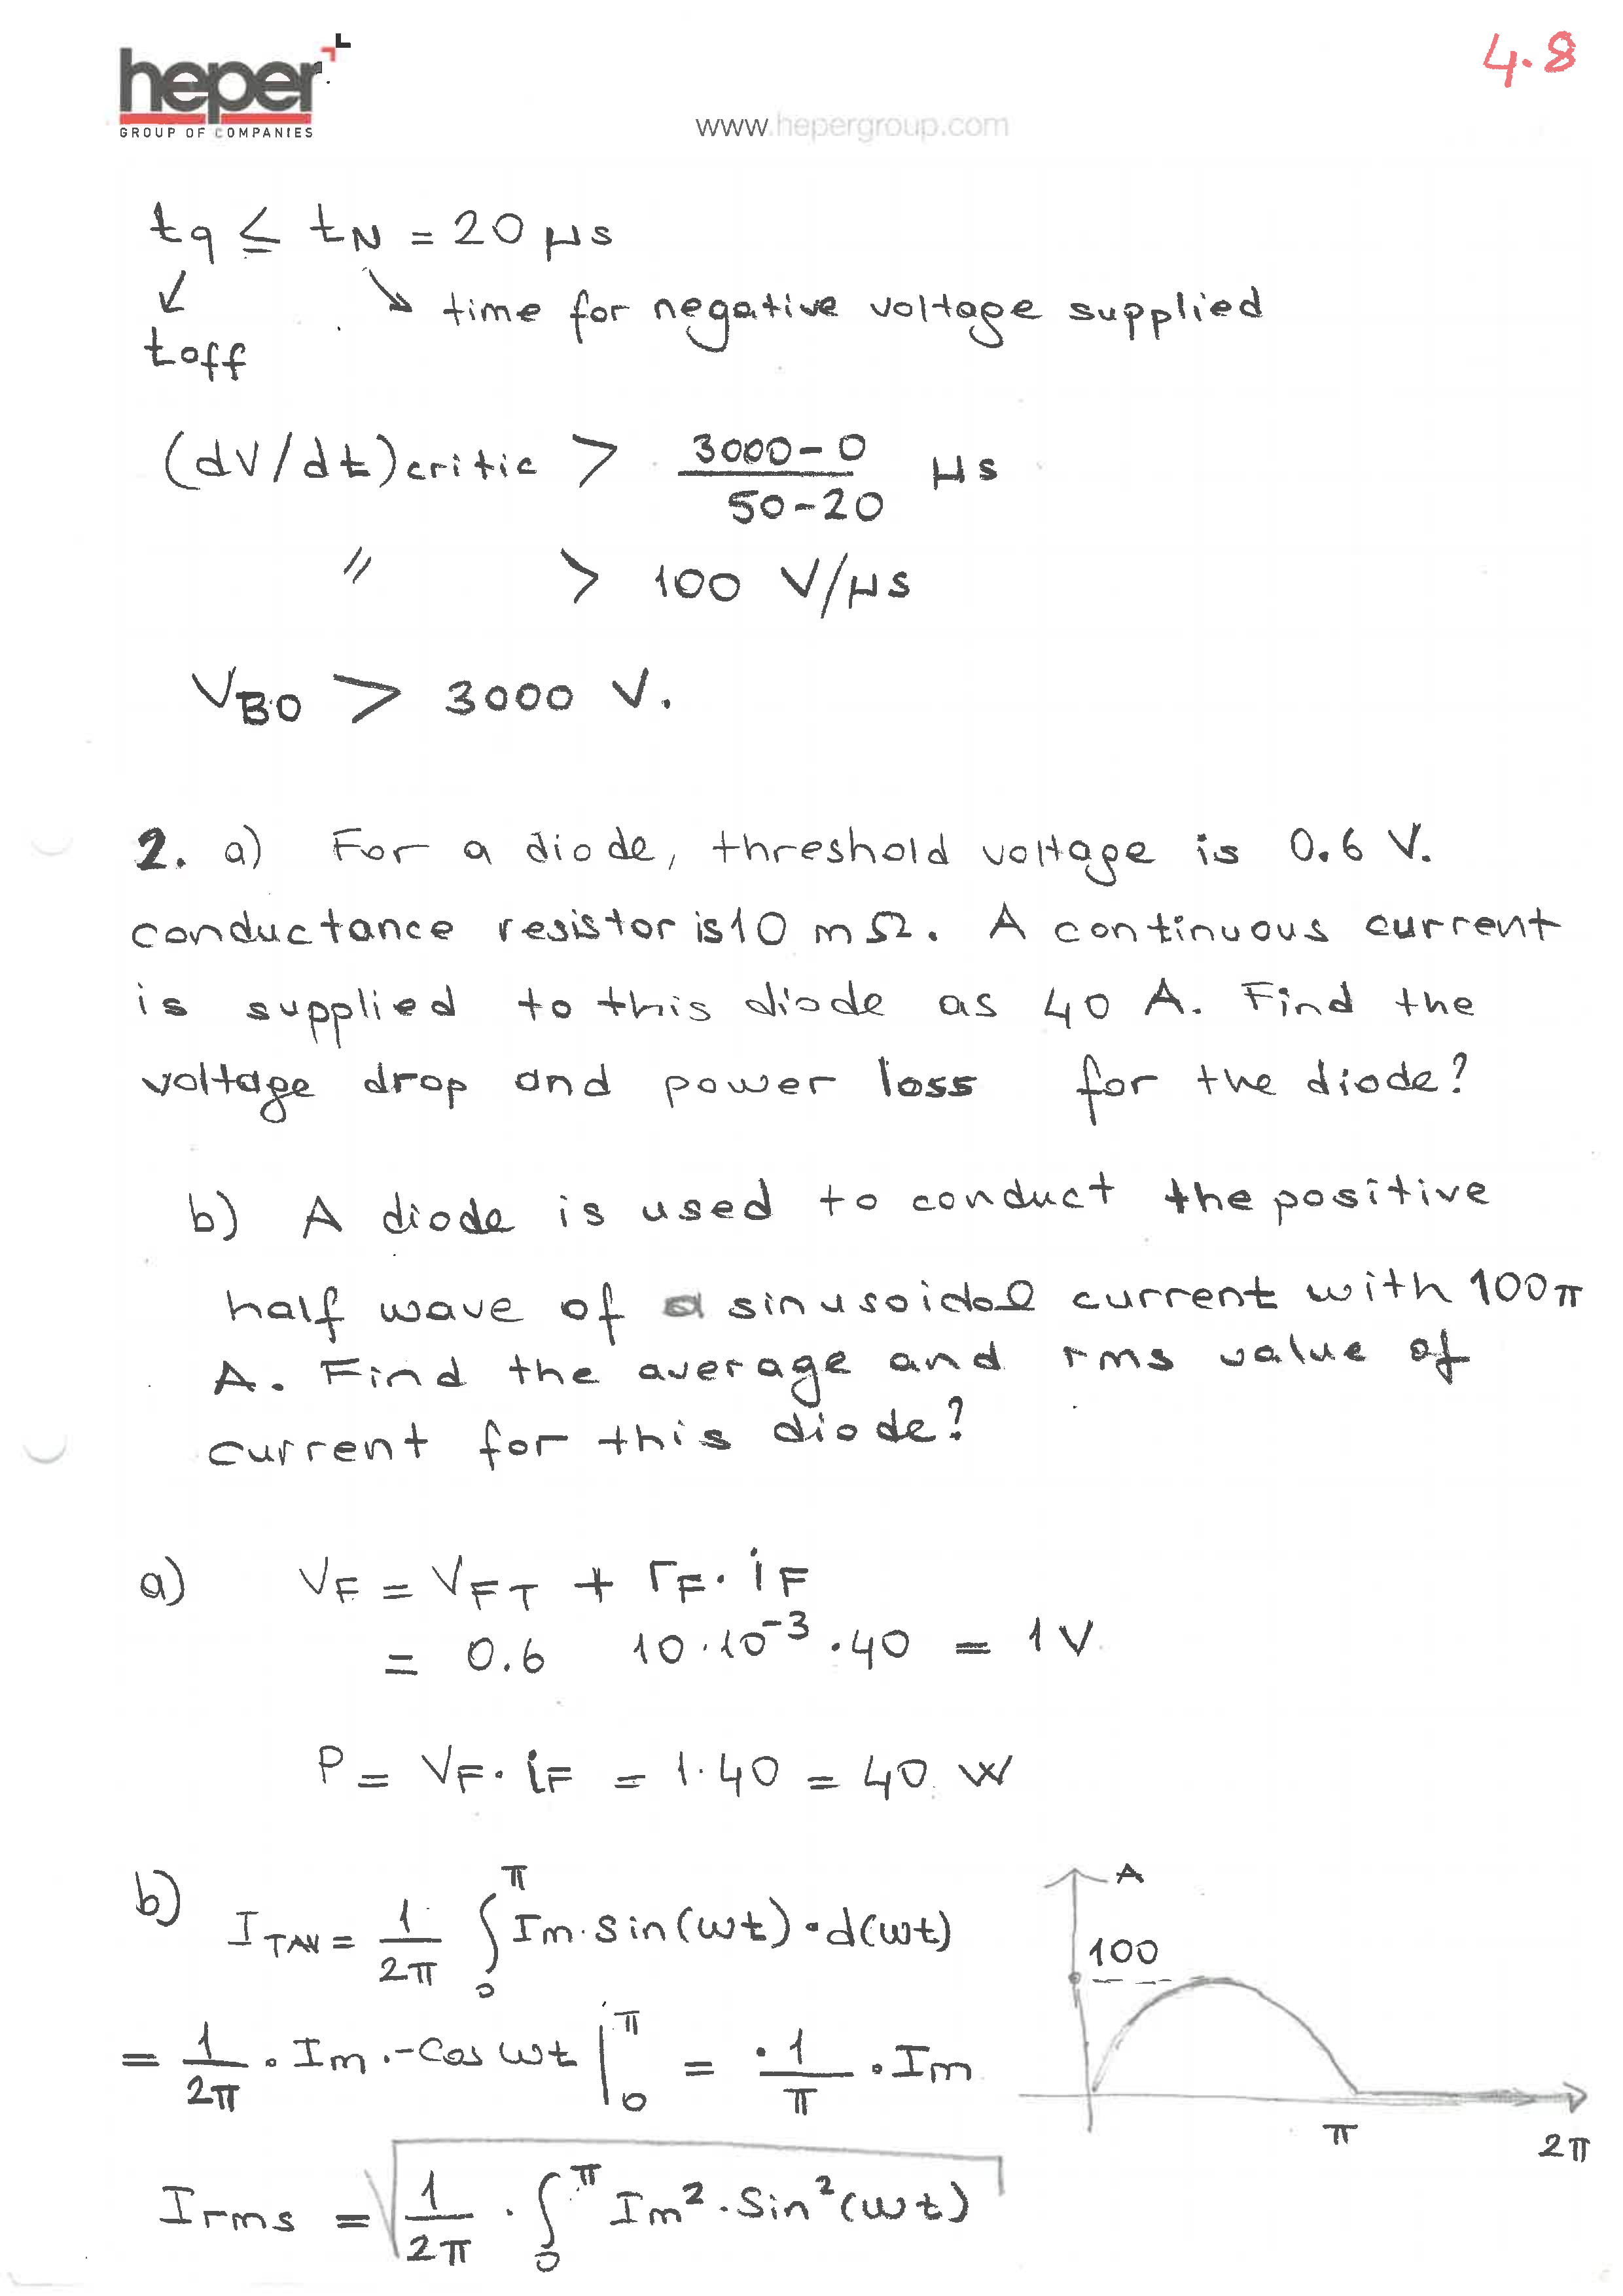 heper
GROUP OF COMPANIES
www.hepergroup.com
4.8
tq ≤ tN = 20 µs
↙ ↘ time for negative voltage supplied
toff
(dV/dt)critic > (3000-0)/(50-20) µs
〃 > 100 V/µs
VBO > 3000 V.
2. a) For a diode, threshold voltage is 0.6 V.
conductance resistor is 10 mΩ. A continuous current
is supplied to this diode as 40 A. Find the
voltage drop and power loss for the diode?
b) A diode is used to conduct the positive
half wave of a sinusoidal current with 100π
A. Find the average and rms value of
current for this diode?
a) VF = VFT + rF. iF
= 0.6 10.10^-3 .40 = 1V
P = VF. iF = 1.40 = 40 W
b) ITAV = 1/2π ∫_0^π Im.Sin(ωt).d(ωt)
= 1/2π . Im .-Cos ωt |_0^π = 1/π . Im
Irms = √(1/2π . ∫_0^π Im² . Sin²(ωt))
A
100
π
2π